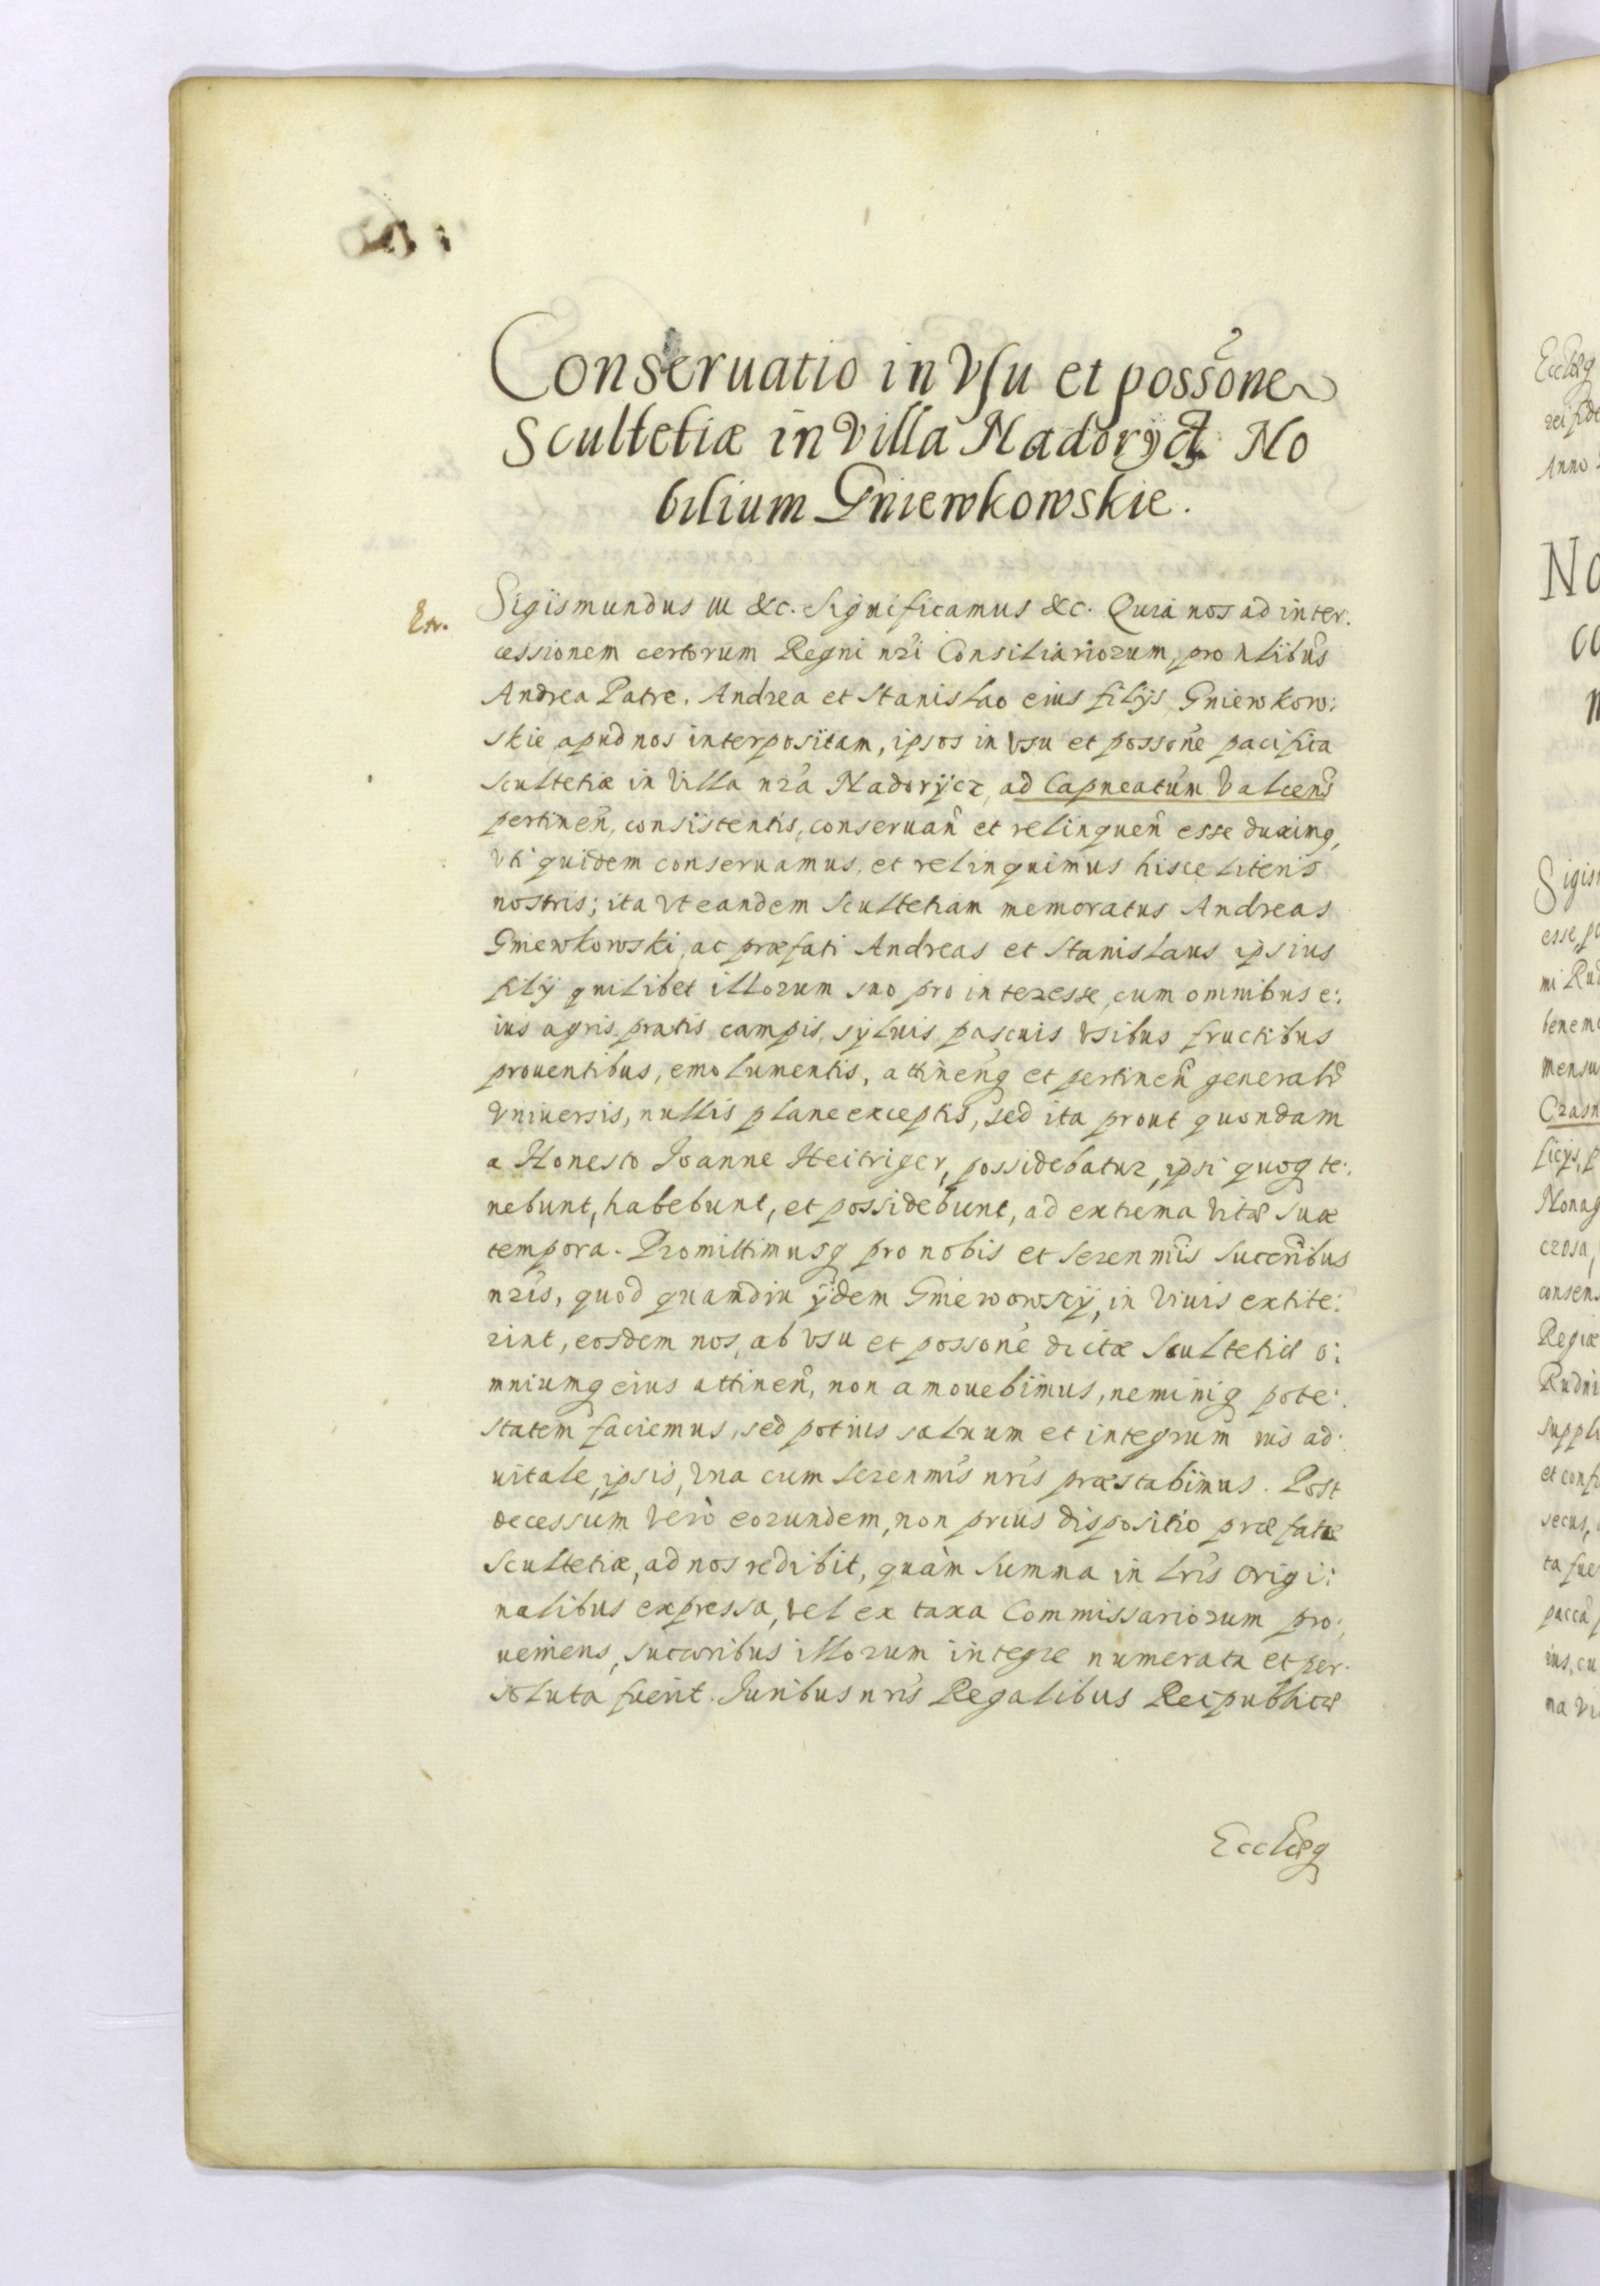 Conseruatio in Vsu et possone
Scultetiæ in Villa Nadorycz No
bilium Gniewkowskie.
Sigismundus III &c. Significamus &c. Quia nos ad inter.
cessionem certorum Regni nri Consiliariorum, pro Nlibus
Andrea Patre, Andrea et Stanislao eius filijs Gniewkow:
skie apud nos interpositam, ipsos in Vsu et possone pacifica
Scultetiæ in Villa nra Nadorycz, ad Capneatum Valcens
pertinen, consistentis, conseruan et relinquen esse duximq,
Vti quidem conseruamus, et relinquimus hisce literis
nostris; ita Vt eandem Scultetiam memoratus Andreas
Gniewkowski, ac præfati Andreas et Stanislaus ipsius
filij quilibet illorum suo pro interesse, cum omnibus e:
ius agris, pratis, campis, syluis pascuis Vsibus fructibus
prouentibus, emolumentis, attinenq et pertinen generalr
Vniuersis, nullis plane exceptis, sed ita prout quondam
a Honesto Joanne Heitriger, possidebatur, ipsi quoq te:
nebunt, habebunt, et possidebunt, ad extrema Vitæ suæ
tempora. Promittimusq pro nobis et Serenmis Succribus
nris, quod quamdiu ijdem Gniewowscy, in Viuis extite:
rint, eosdem nos, ab Vsu et possone dictæ Scultetiæ o:
mniumq eius attinen, non amouebimus, neminiq pote:
statem faciemus, sed potius saluum et integrum ius ad:
uitale, ipsis, Vna cum Serenmis nris præstabimus. Post
decessum Vero eorundem, non prius dispositio præfatæ
Scultetiæ, ad nos redibit, quàm Summa in Lris Origi:
nalibus expressa, Vel ex taxa Commissariorum pro:
ueniens, succribus illorum integre numerata et per.
soluta fuerit. Juribus nris Regalibus Reipublicæ
Eccliæq